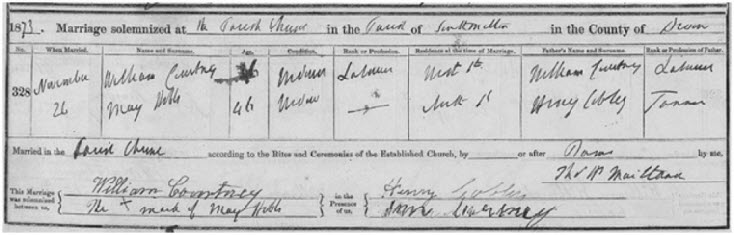 1873. Marriage solemnized at the Parish Church in the Parish of South Molton in the County of Devon
No. When Married. Name and Surname. Age. Condition. Rank or Profession. Residence at the time of Marriage. Father's Name and Surname. Rank or Profession of Father.
328 November 26 William Courtney Widower Labourer West St William Courtney Labourer
Mary Hobbs 46 Widow — St Henry Cobley
Married in the Parish Church according to the Rites and Ceremonies of the Established Church, by or after Banns by me,
Thos Wm Maitland
This Marriage was solemnized between us, William Courtney in the Presence of us, Henry Cobley
The X mark of Mary Hobbs